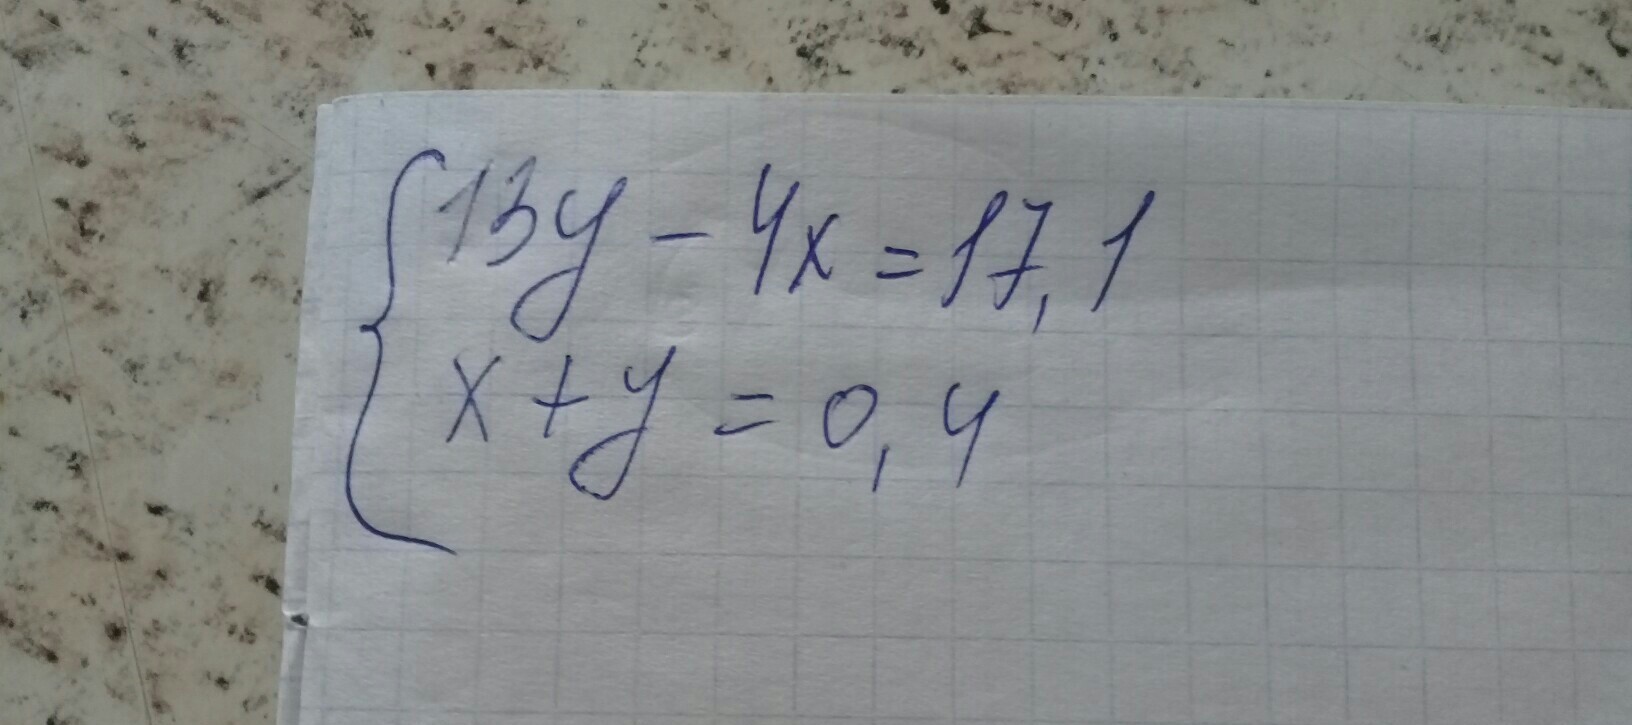 13y - 4x = 17,1
x + y = 0,4